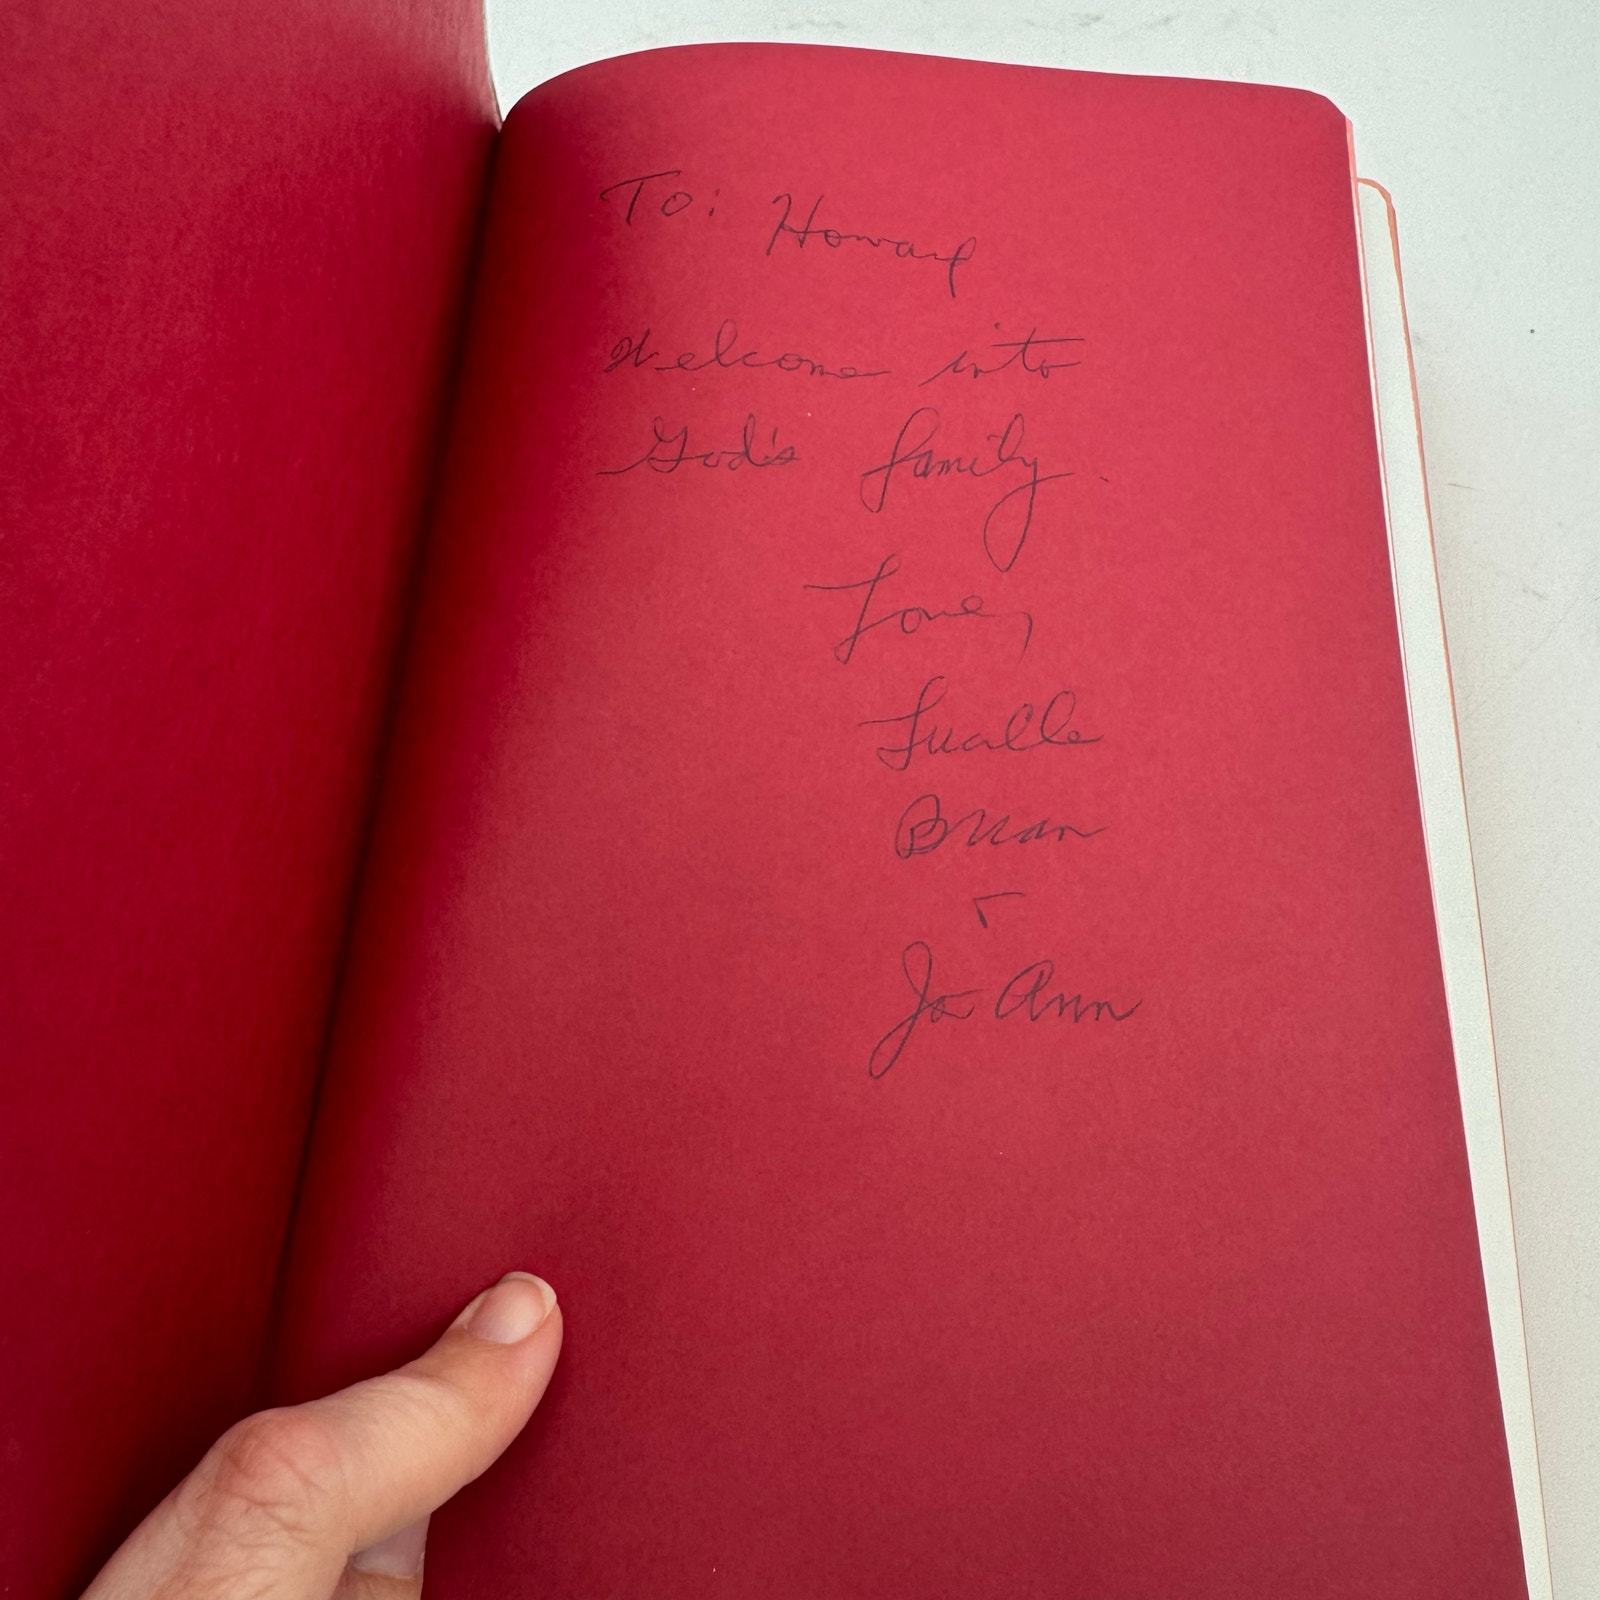 To: Howard
Welcome into
God's family.
Love,
Lucille
Brian
+
Jo Ann